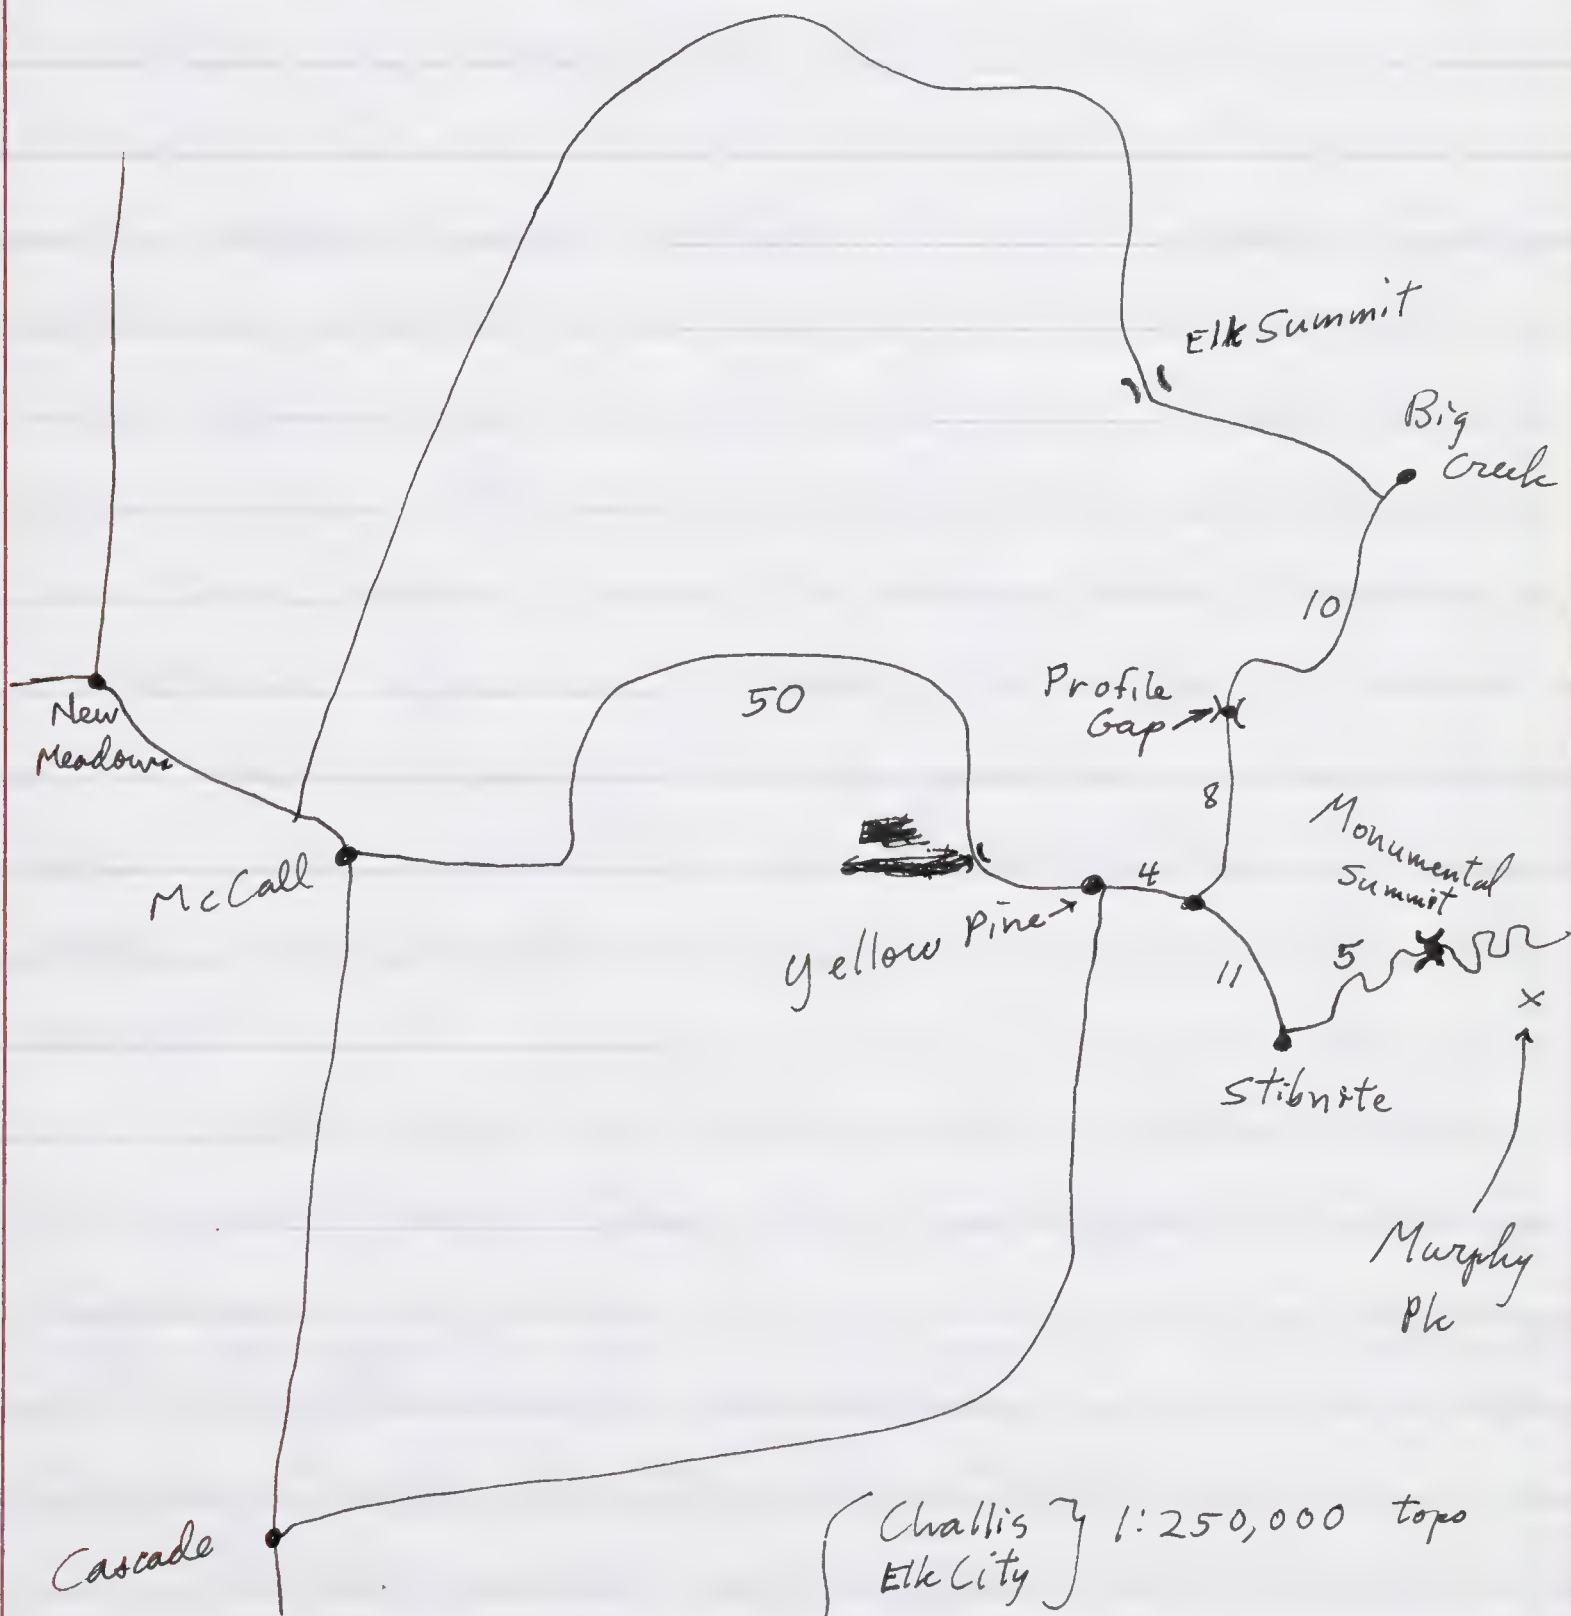 Elk Summit
Big
Creek
10
Profile
Gap
50
8
New
Meadows
Monumental
Summit
McCall
4
Yellow Pine
5
11
x
Stibnite
Murphy
Pk
Cascade
Challis
Elk City
1:250,000 topo